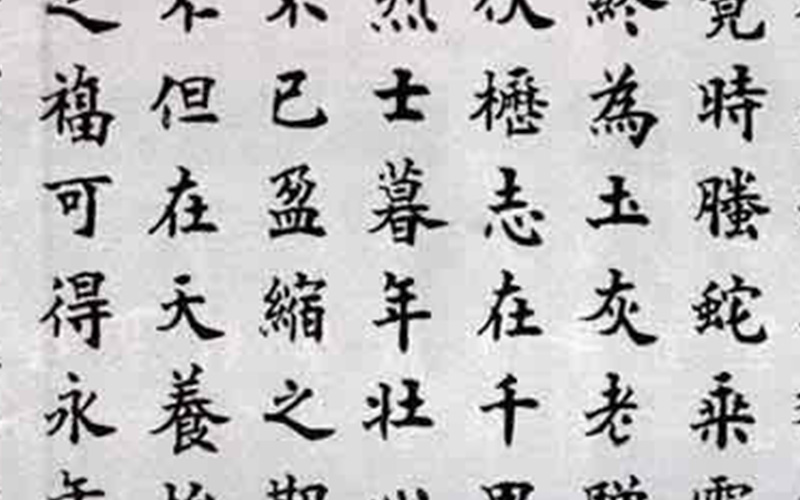 竟時螣蛇乘
終為土灰老
伏櫪志在千
烈士暮年壯
不已盈縮之
不但在天養
之福可得永